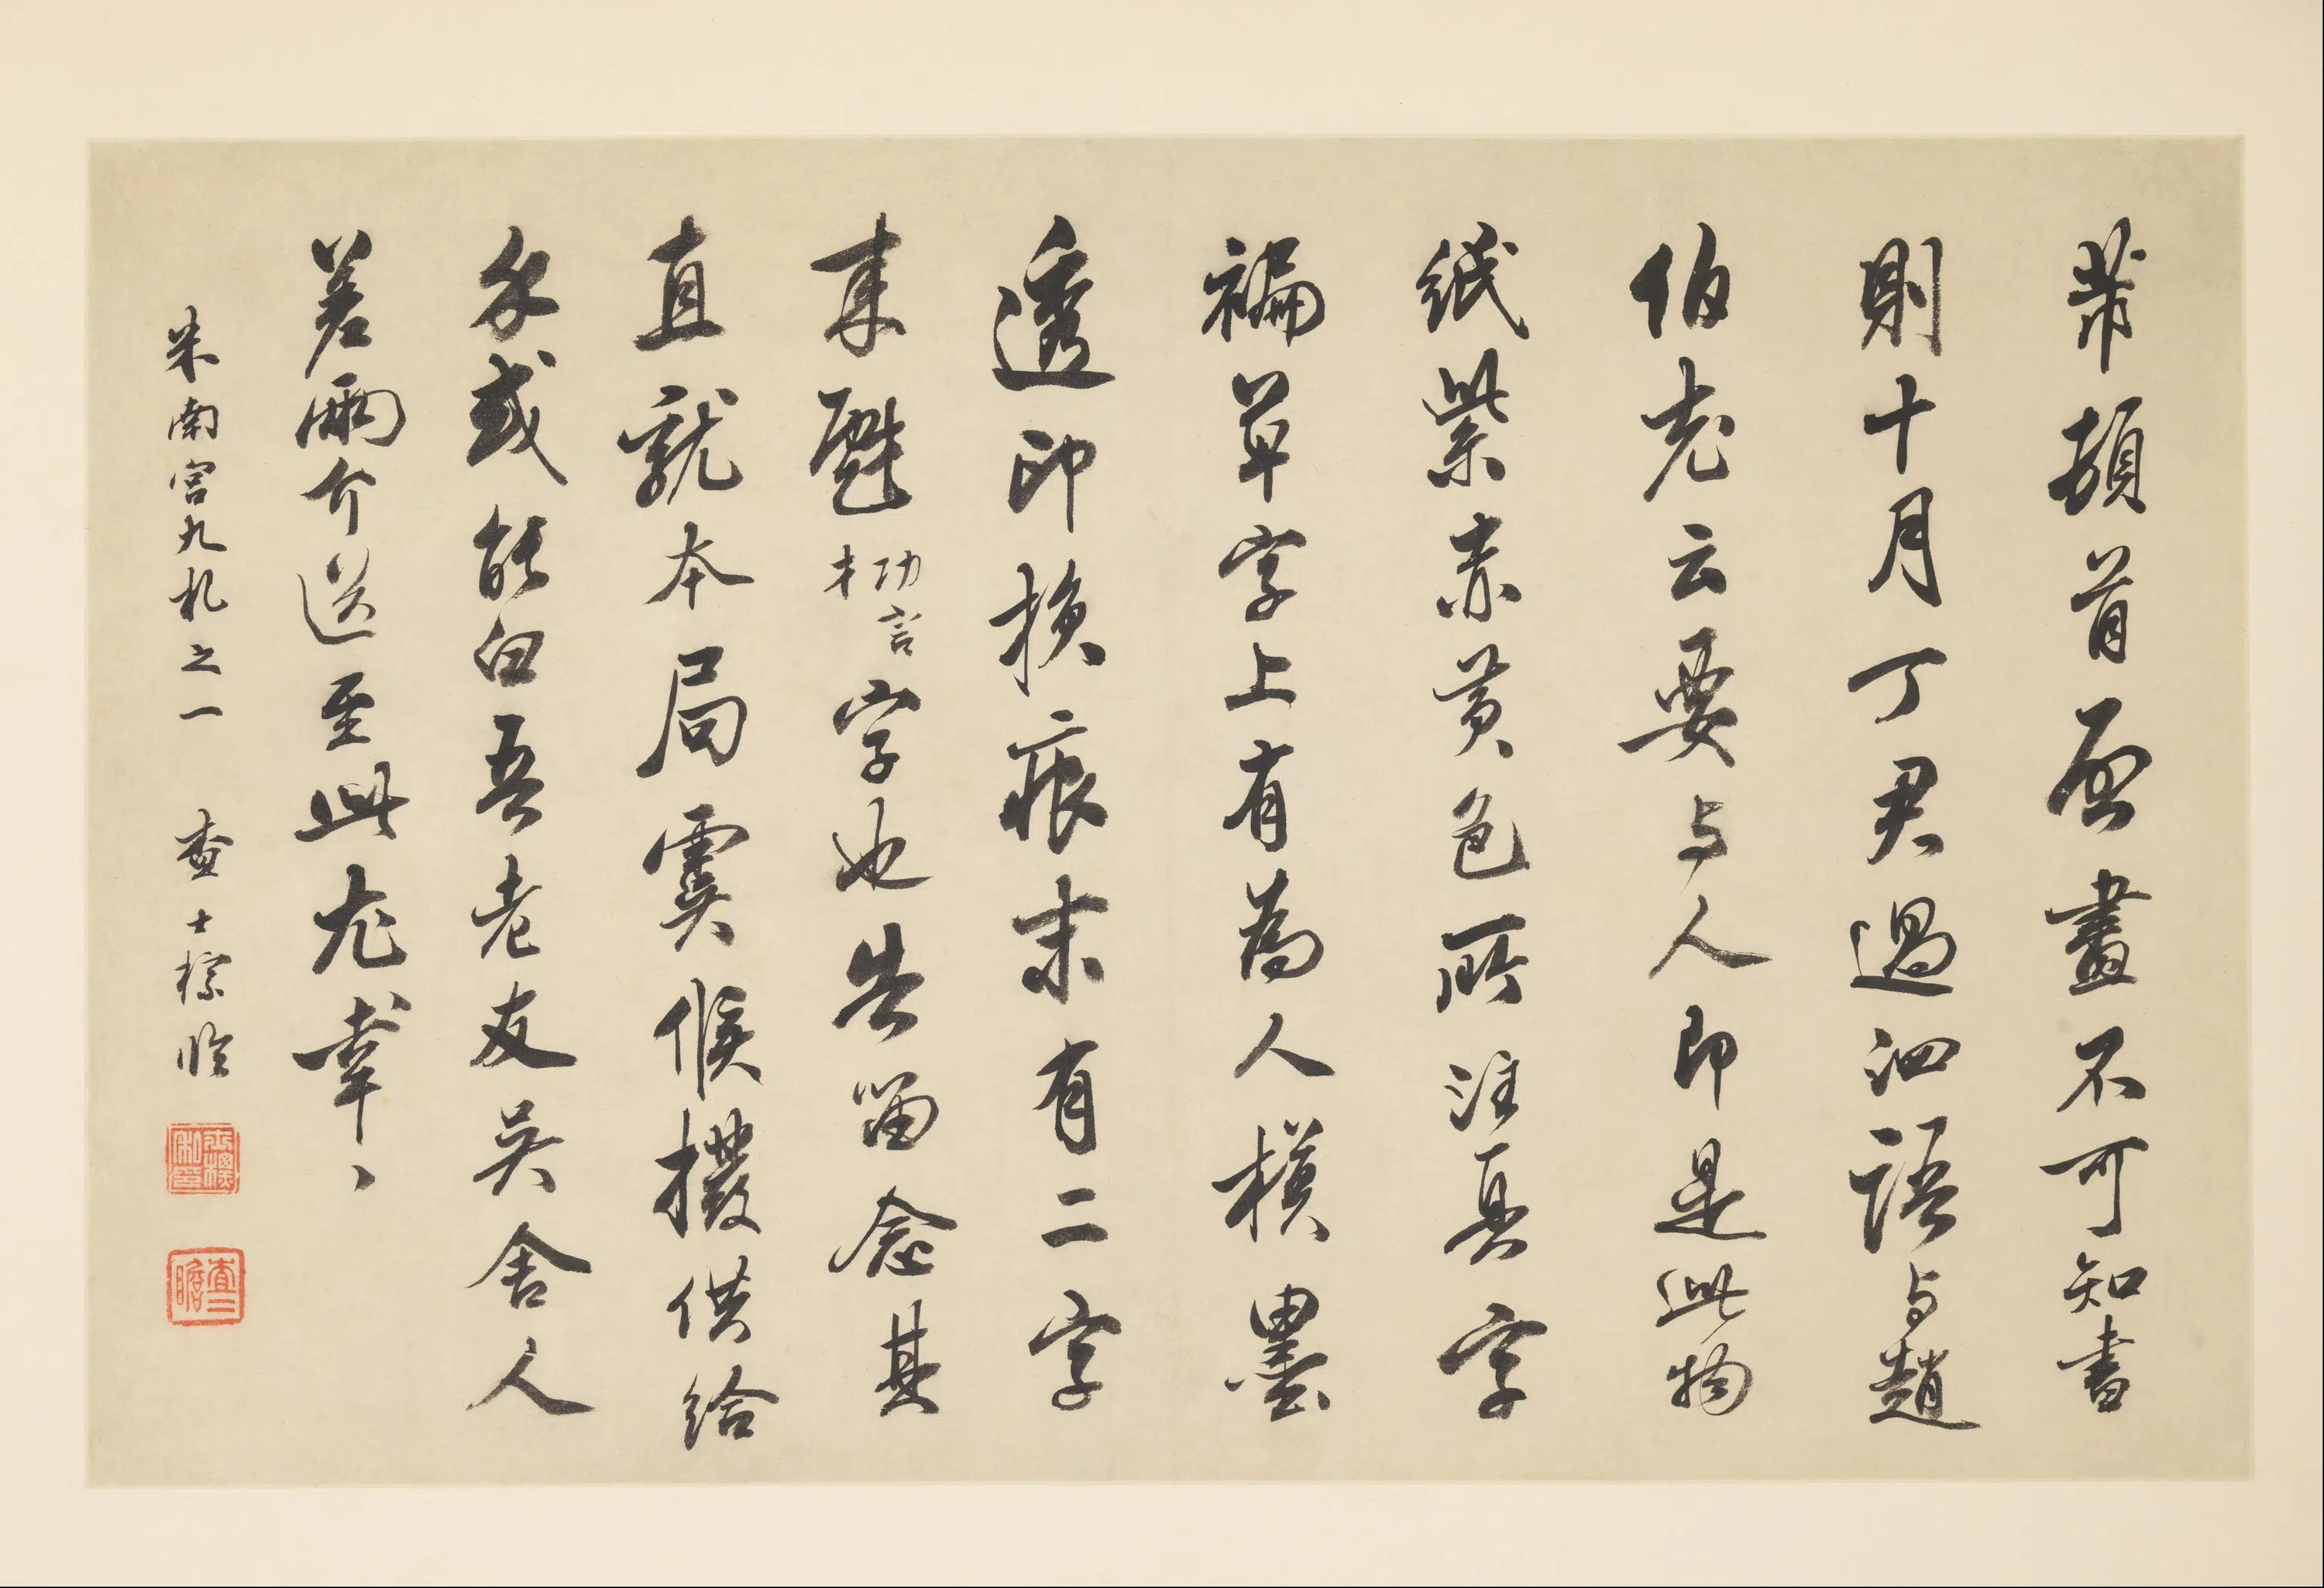 芾頓首啓畫不可知書
則十月丁君過泗語与趙
伯老云要与人即是此物
紙紫赤黄色所注真字
褊草字上有為人模墨
透印損痕末有二字
来戲切言才字也告留念其
直就本局虞候擾供給
多或能白吾老友吴舍人
差兩介送至此尤幸、
米南宮九札之一 查士標臨
士標私印
查二瞻